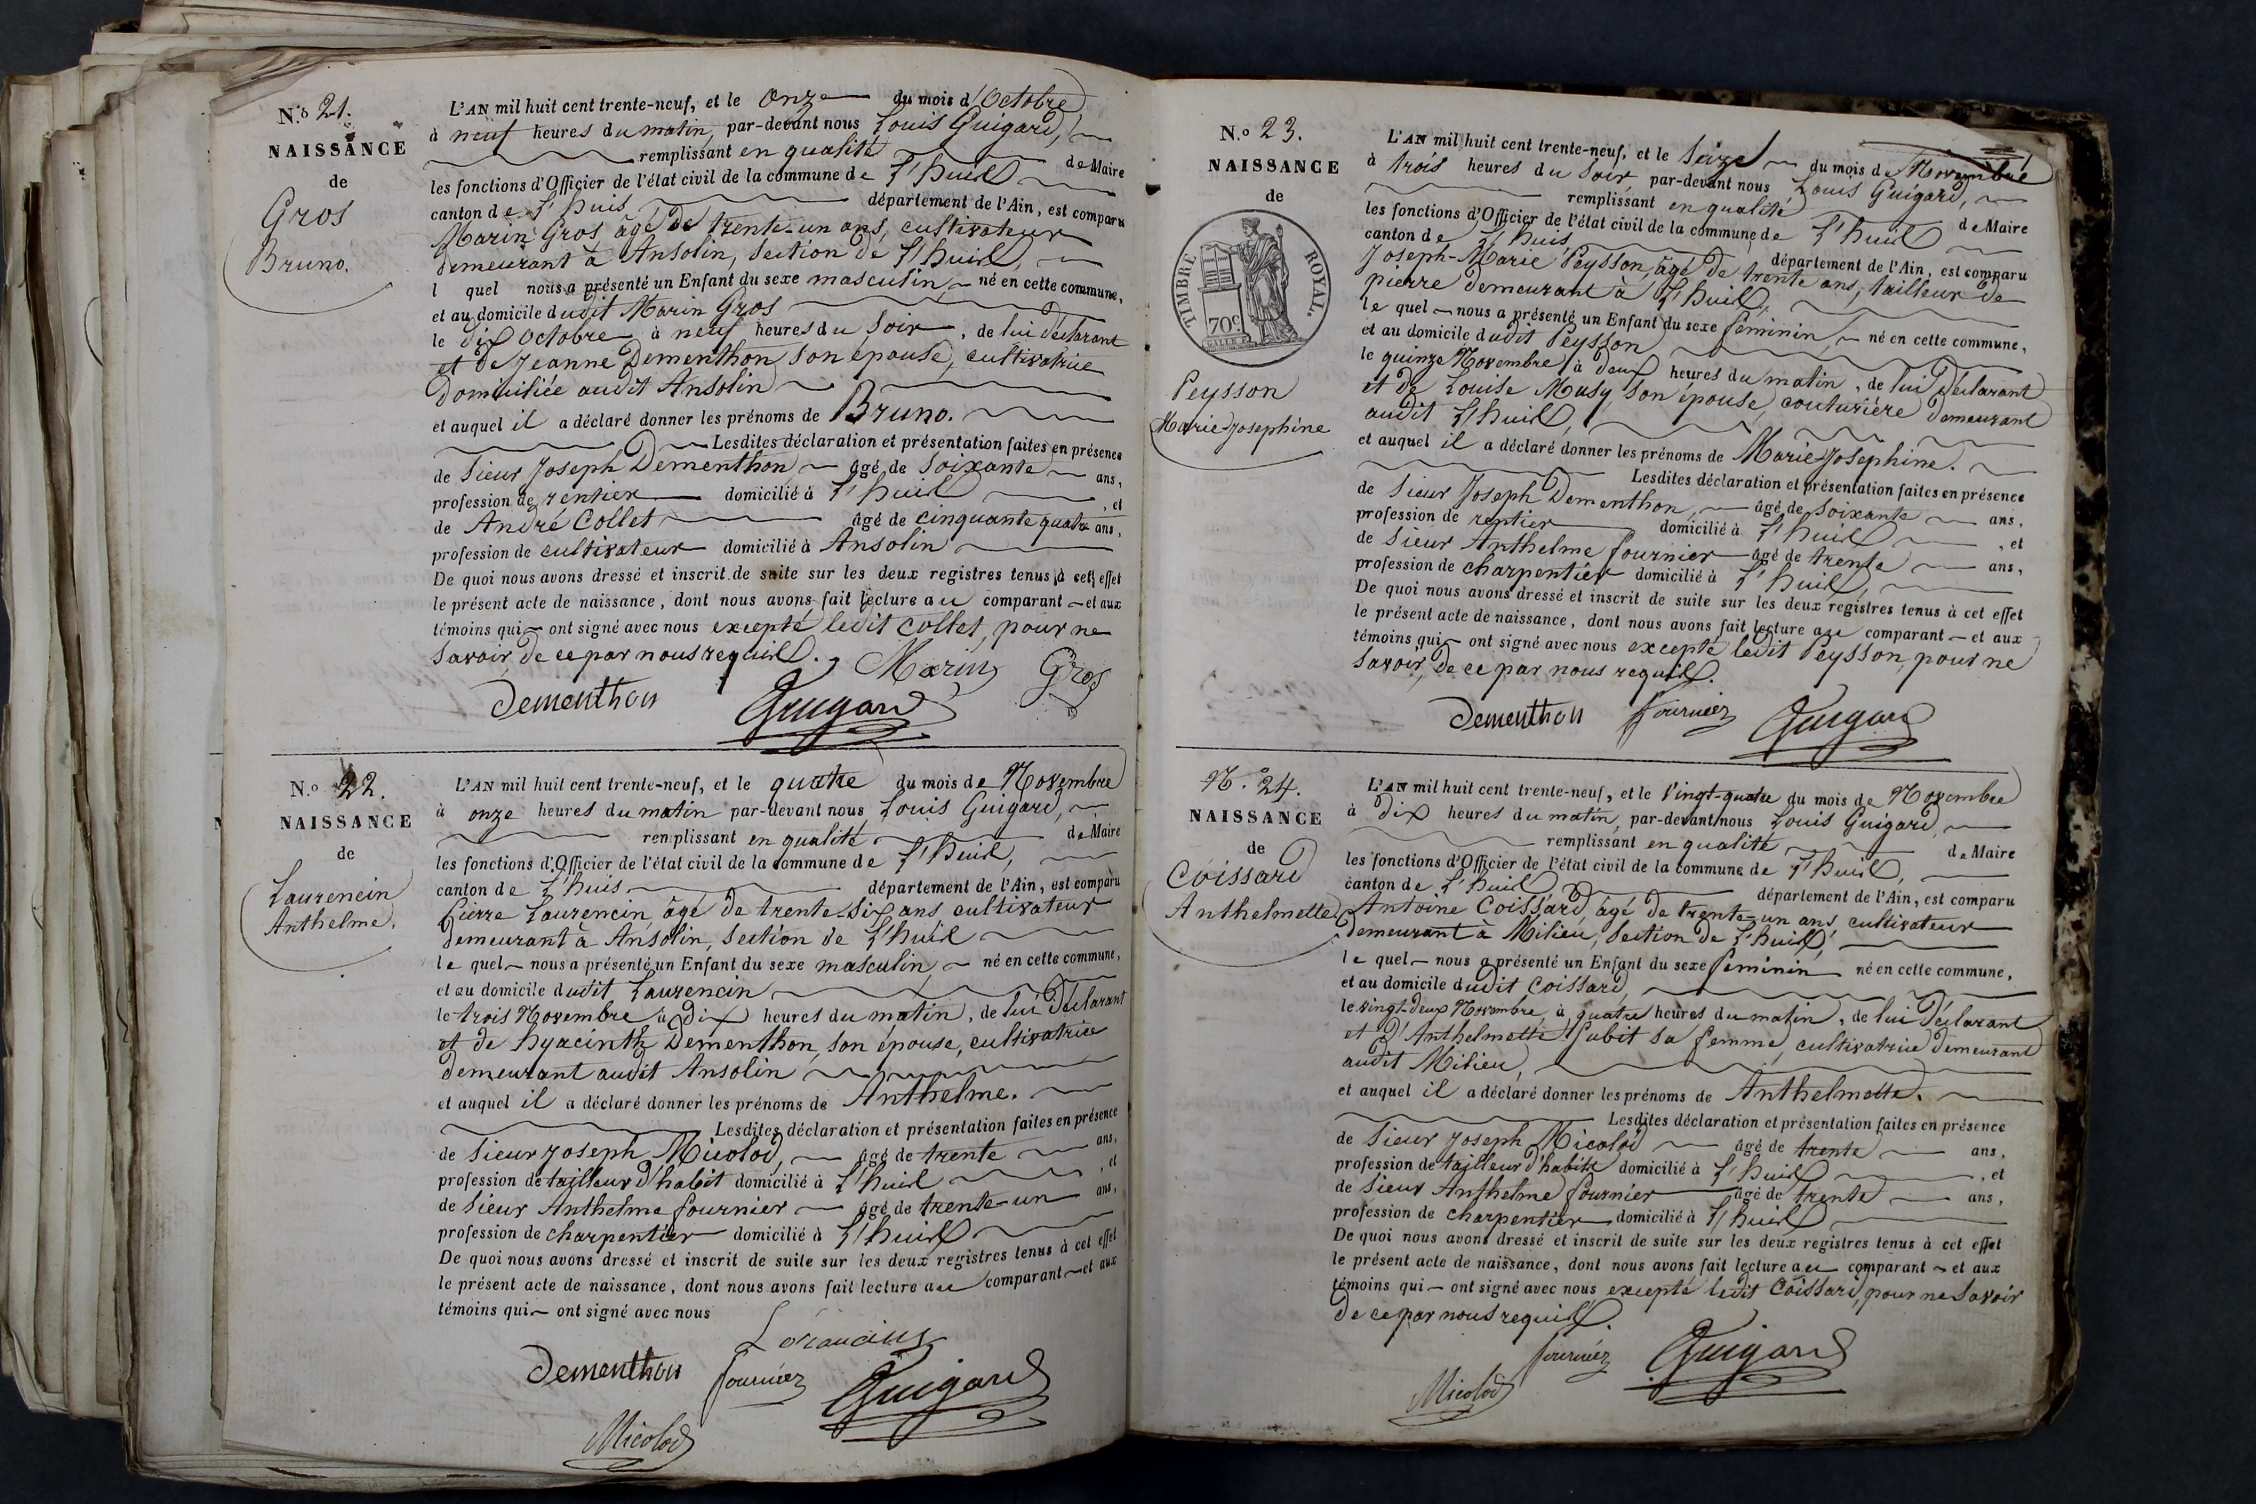 N.o 21.
NAISSANCE
de
Gros
Bruno.
L'AN mil huit cent trente-neuf, et le onze du mois d'Octobre
à neuf heures du matin, par-devant nous Louis Guigard,
remplissant en qualité de Maire
les fonctions d'Officier de l'état civil de la commune de L'huis
canton de L'huis département de l'Ain, est comparu
Marin Gros âgé de trente-un ans, cultivateur
demeurant à Ansolin, section de L'huis,
l quel nous a présenté un Enfant du sexe masculin, né en cette commune,
et au domicile dudit Marin Gros
le dix Octobre à neuf heures du soir, de lui déclarant
et de Jeanne Dementhon son épouse, cultivatrice
domiciliée audit Ansolin
et auquel il a déclaré donner les prénoms de Bruno.
Lesdites déclaration et présentation faites en présence
de sieur Joseph Dementhon, âgé de soixante ans,
profession de rentier domicilié à L'huis, et
de André Collet âgé de cinquante quatre ans,
profession de cultivateur domicilié à Ansolin
De quoi nous avons dressé et inscrit de suite sur les deux registres tenus à cet effet
le présent acte de naissance, dont nous avons fait lecture au comparant et aux
témoins qui ont signé avec nous excepté ledit Collet, pour ne
savoir de ce par nous requis.
Marin Gros
Dementhon Guigard
N.o 22.
NAISSANCE
de
Laurencin
Anthelme.
L'AN mil huit cent trente-neuf, et le quatre du mois de Novembre
à onze heures du matin par-devant nous Louis Guigard,
remplissant en qualité de Maire
les fonctions d'Officier de l'état civil de la commune de L'huis,
canton de L'huis département de l'Ain, est comparu
Pierre Laurencin, âgé de trente-six ans, cultivateur
demeurant à Ansolin, section de L'huis
le quel nous a présenté un Enfant du sexe masculin, né en cette commune,
et au domicile dudit Laurencin
le trois Novembre à dix heures du matin, de lui déclarant
et de hyacinthe Dementhon, son épouse, cultivatrice
demeurant audit Ansolin
et auquel il a déclaré donner les prénoms de Anthelme.
Lesdites déclaration et présentation faites en présence
de sieur Joseph Micolod, âgé de trente ans,
profession de tailleur d'habit domicilié à L'huis, et
de sieur Anthelme fournier âgé de trente-un ans,
profession de charpentier domicilié à L'huis
De quoi nous avons dressé et inscrit de suite sur les deux registres tenus à cet effet
le présent acte de naissance, dont nous avons fait lecture au comparant et aux
témoins qui ont signé avec nous
Dementhon fournier Guigard
Micolod
N.o 23.
NAISSANCE
de
TIMBRE ROYAL
70c
Peysson
Marie-Josephine
L'AN mil huit cent trente-neuf, et le seize du mois de Novembre
à trois heures du soir, par-devant nous Louis Guigard,
remplissant en qualité de Maire
les fonctions d'Officier de l'état civil de la commune de L'huis
canton de L'huis département de l'Ain, est comparu
Joseph-Marie Peysson, âgé de trente ans, tailleur de
pierre demeurant à L'huis,
le quel nous a présenté un Enfant du sexe féminin, né en cette commune,
et au domicile dudit Peysson
le quinze Novembre, à deux heures du matin, de lui déclarant
et de Louise Masy son épouse, couturière demeurant
audit L'huis,
et auquel il a déclaré donner les prénoms de Marie-Josephine.
Lesdites déclaration et présentation faites en présence
de sieur Joseph Dementhon, âgé de soixante ans,
profession de rentier domicilié à L'huis, et
de sieur Anthelme fournier âgé de trente ans,
profession de charpentier domicilié à L'huis,
De quoi nous avons dressé et inscrit de suite sur les deux registres tenus à cet effet
le présent acte de naissance, dont nous avons fait lecture au comparant et aux
témoins qui ont signé avec nous excepté ledit Peysson, pour ne
savoir, de ce par nous requis.
Dementhon fournier Guigard
N.o 24.
NAISSANCE
de
Coissard
Anthelmette
L'AN mil huit cent trente-neuf, et le vingt-quatre du mois de Novembre
à dix heures du matin, par-devant nous Louis Guigard,
remplissant en qualité de Maire
les fonctions d'Officier de l'état civil de la commune de L'huis,
canton de L'huis département de l'Ain, est comparu
Antoine Coissard, âgé de trente-un ans, cultivateur
demeurant à Milieu, section de L'huis,
le quel nous a présenté un Enfant du sexe féminin né en cette commune,
et au domicile dudit Coissard,
le vingt-deux Novembre, à quatre heures du matin, de lui déclarant
et d'Anthelmette Gubit sa femme, cultivatrice demeurant
audit Milieu,
et auquel il a déclaré donner les prénoms de Anthelmette.
Lesdites déclaration et présentation faites en présence
de sieur Joseph Micolod âgé de trente ans,
profession de tailleur d'habits domicilié à L'huis, et
de sieur Anthelme fournier âgé de trente ans,
profession de charpentier domicilié à L'huis
De quoi nous avons dressé et inscrit de suite sur les deux registres tenus à cet effet
le présent acte de naissance, dont nous avons fait lecture au comparant et aux
témoins qui ont signé avec nous excepté ledit Coissard, pour ne savoir
de ce par nous requis.
fournier Guigard
Micolod